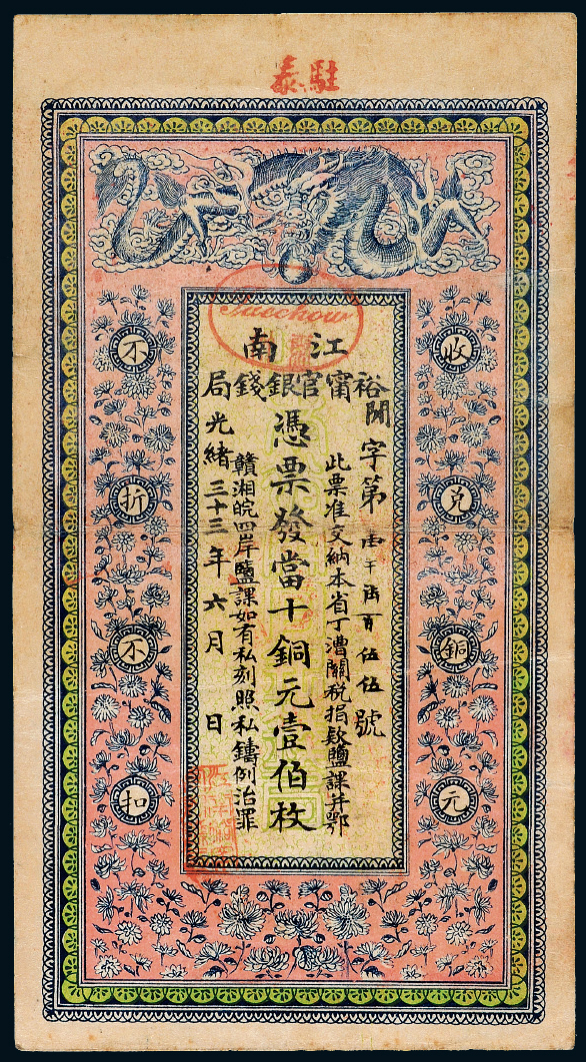 駐泰
江南
裕甯官銀錢局
字第千百伍伍號
此票准交納本省丁漕關稅捐欵鹽課并鄂
憑票發當十銅元壹佰枚
贛湘皖四岸鹽課如有私刻照私鑄例治罪
光緒三十三年六月 日
收兌銅元
不折不扣